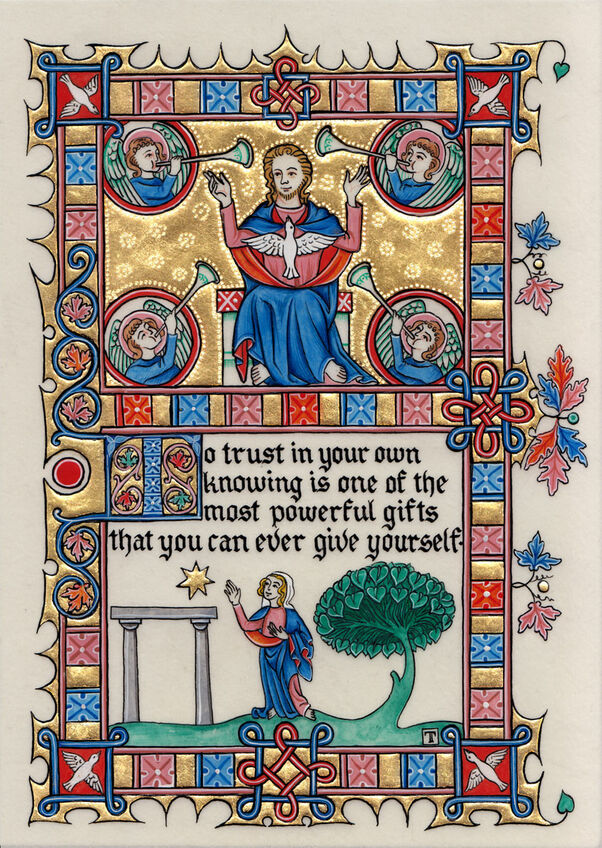 To trust in your own
knowing is one of the
most powerful gifts
that you can ever give yourself.
T